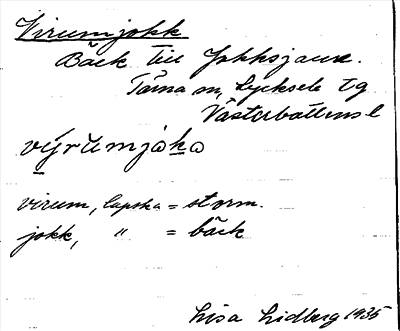 Virumjokk
Bäck till Jokksjaure.
Tärna sn, Lycksele tg
Västerbottens l
vý̱rŭmjoḵa
virum, lapska = storm.
jokk, " = bäck
Lisa Lidberg 1935